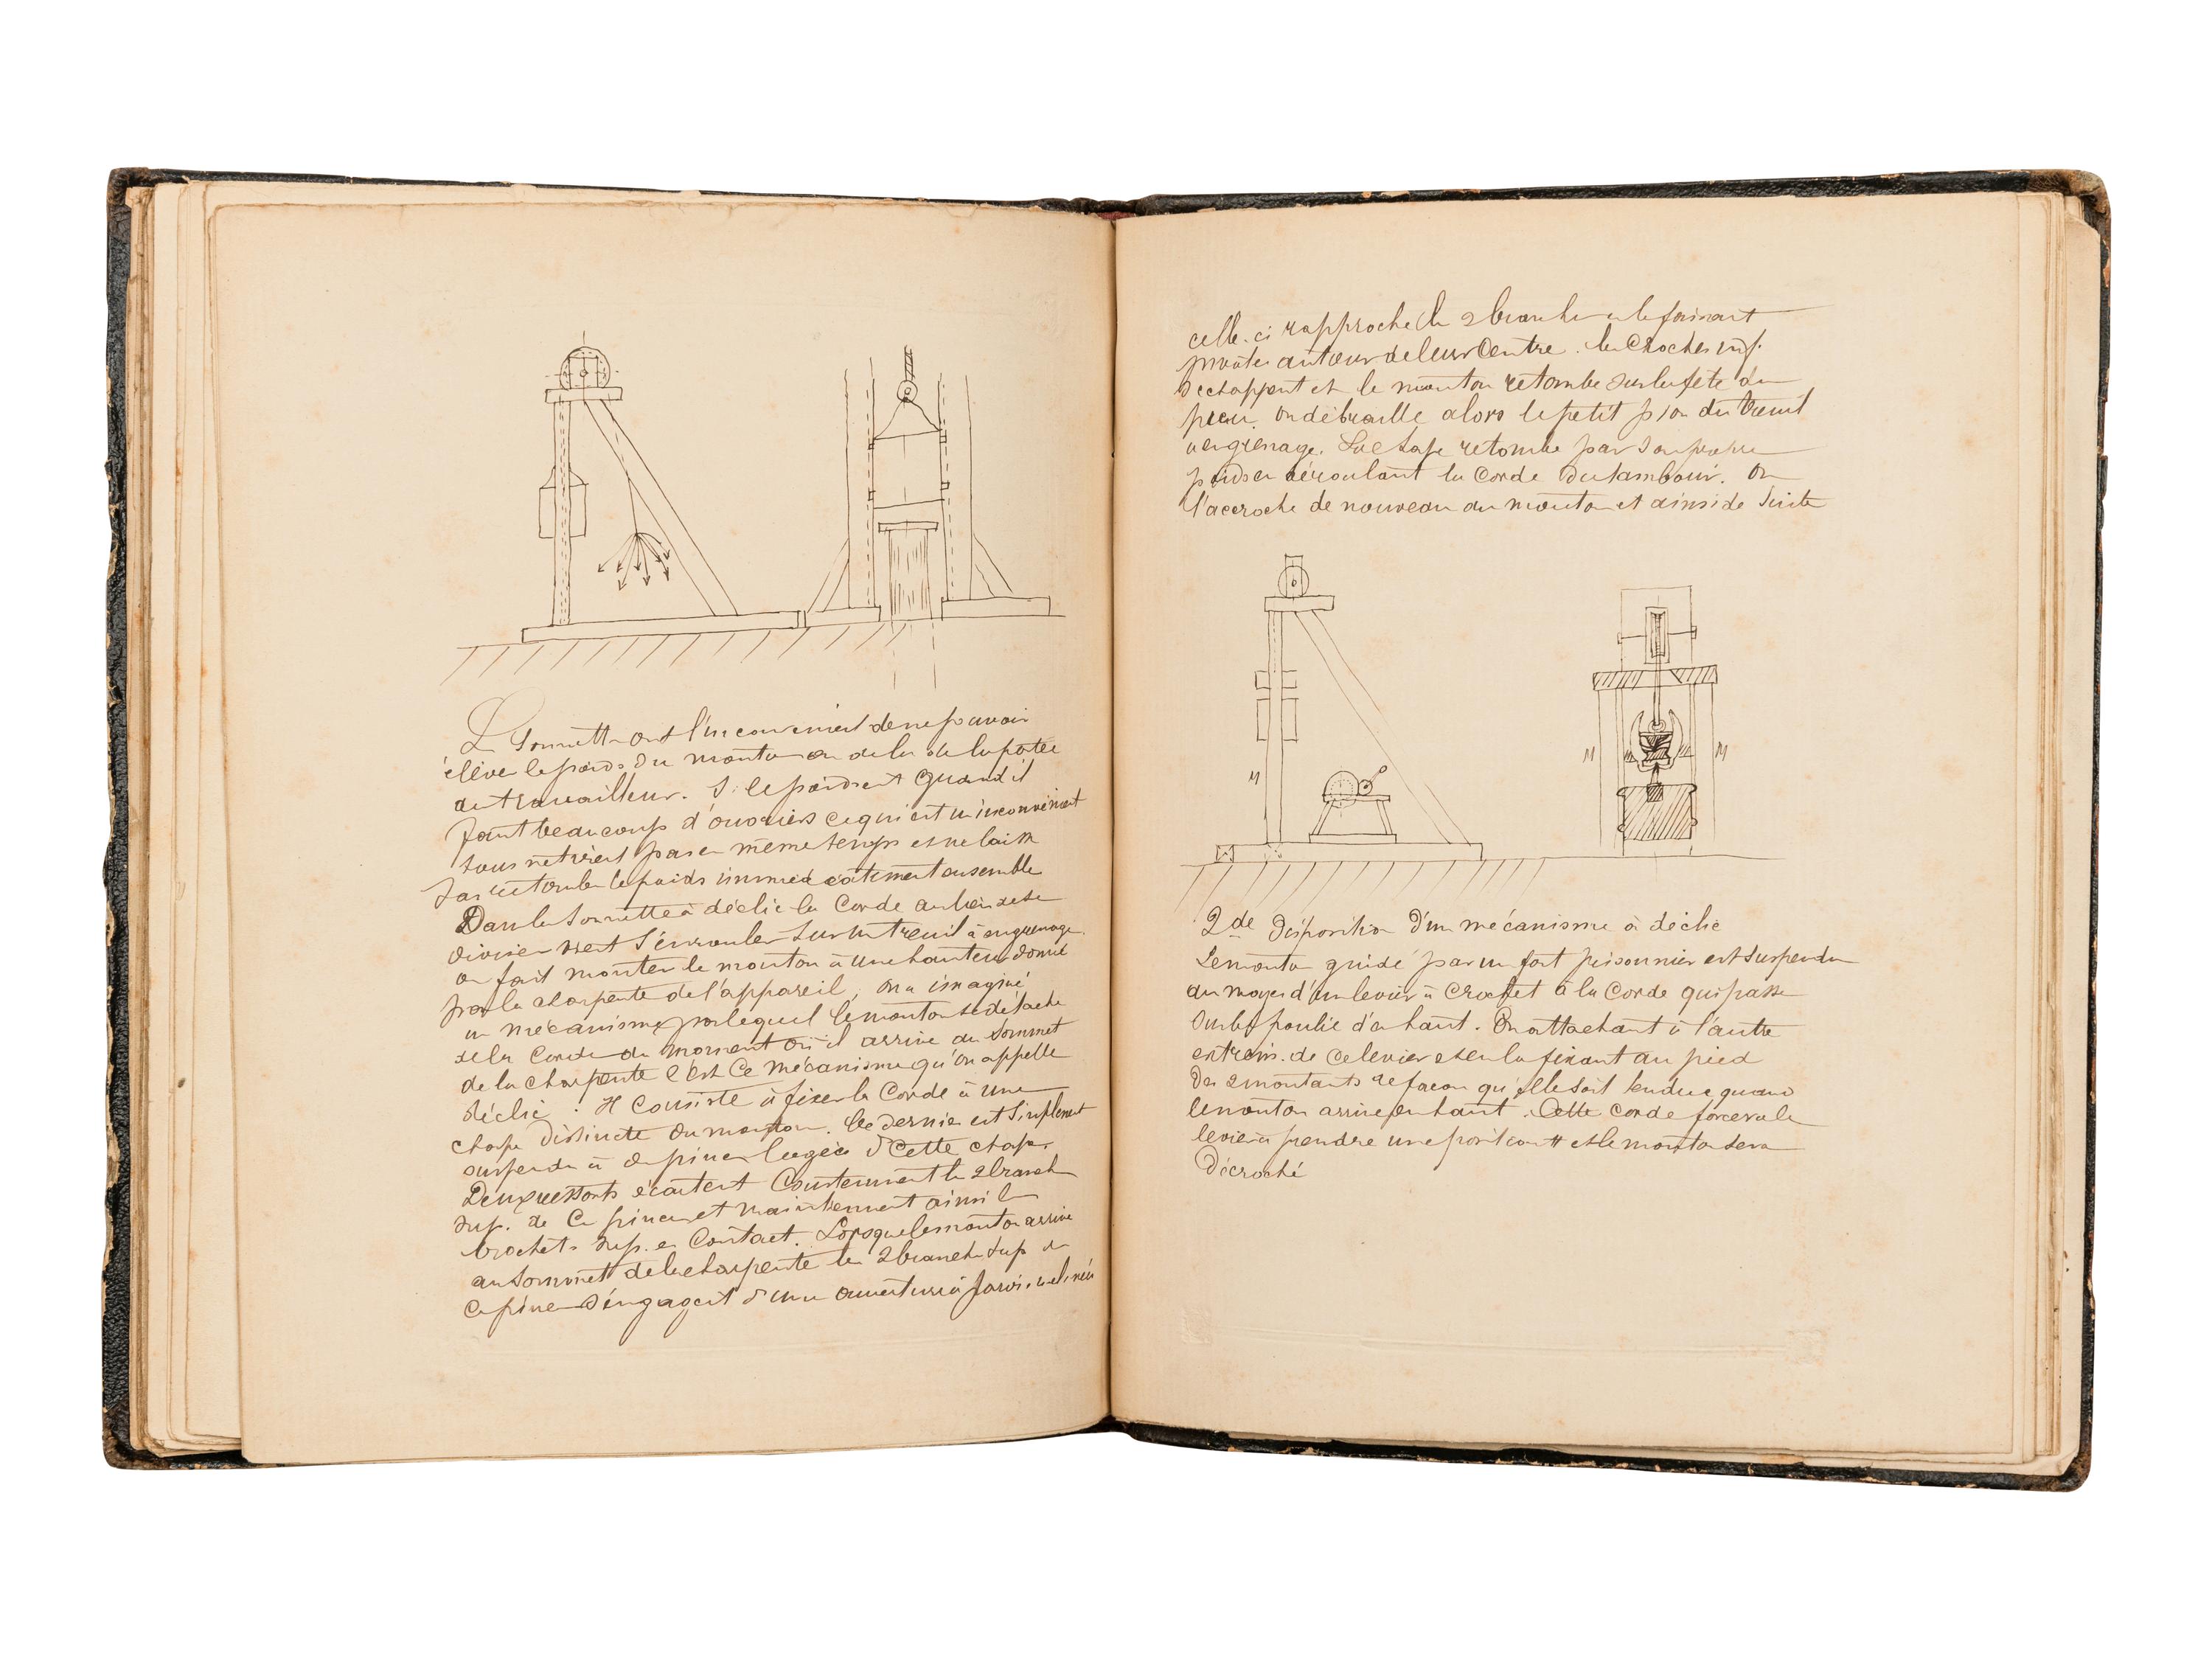 Sonnette ont l'inconvenient de ne pouvoir
élever le poids du mouton au dela de la portée
de travailleur. Si le poids est quand il
faut beaucoup d'ouvriers ce qui est un inconvénient
tous ne tirent pas en même temps et ne laisse
pas retomber le poids immédiatement ensemble
Dans la sonnette à déclic la Corde au lieu de se
diviser vient s'enrouler sur un treuil à engrenage.
on fait monter le mouton à une hauteur donné
par la charpente de l'appareil, on a imaginé
un mécanisme par lequel le mouton se détache
de la Corde au moment où il arrive au Sommet
de la charpente c'est Ce mécanisme qu'on appelle
déclic. Il Consiste à fixer la Corde à une
chape distincte du mouton. Ce dernier est simplement
suspendu à pince logée ds Cette chape.
Deux ressorts écartent Constamment les 2 branches
sup. de Ce pince et maintiennent ainsi les
Crochets sup. en Contact. Lorsque le mouton arrive
au Sommet de la charpente les 2 branches sup de
Ce pince s'engagent ds une ouverture à parois inclinées
celle-ci rapproche les 2 branches en le faisant
pivoter autour de leur Centre. les Crochets inf.
s'echappent et le mouton retombe sur la tête du
pieu. on débraille alors le petit pion du treuil
engrenage. La chape retombe par son propre
poids en déroulant la Corde du tambour. On
l'accroche de nouveau au mouton et ainsi de suite
M
M
M
2de Disposition d'un mécanisme à déclic
Le mouton guidé par un fort prisonnier est suspendu
au moyen d'un levier à Crochet à la Corde qui passe
sur la poulie d'en haut. En attachant à l'autre
extrem. de ce levier et en la fixant au pied
des 2 montants de façon qu'elle soit tendue quand
le mouton arrive en haut. Cette corde forcera le
levier à prendre une position et le mouton sera
Décroché